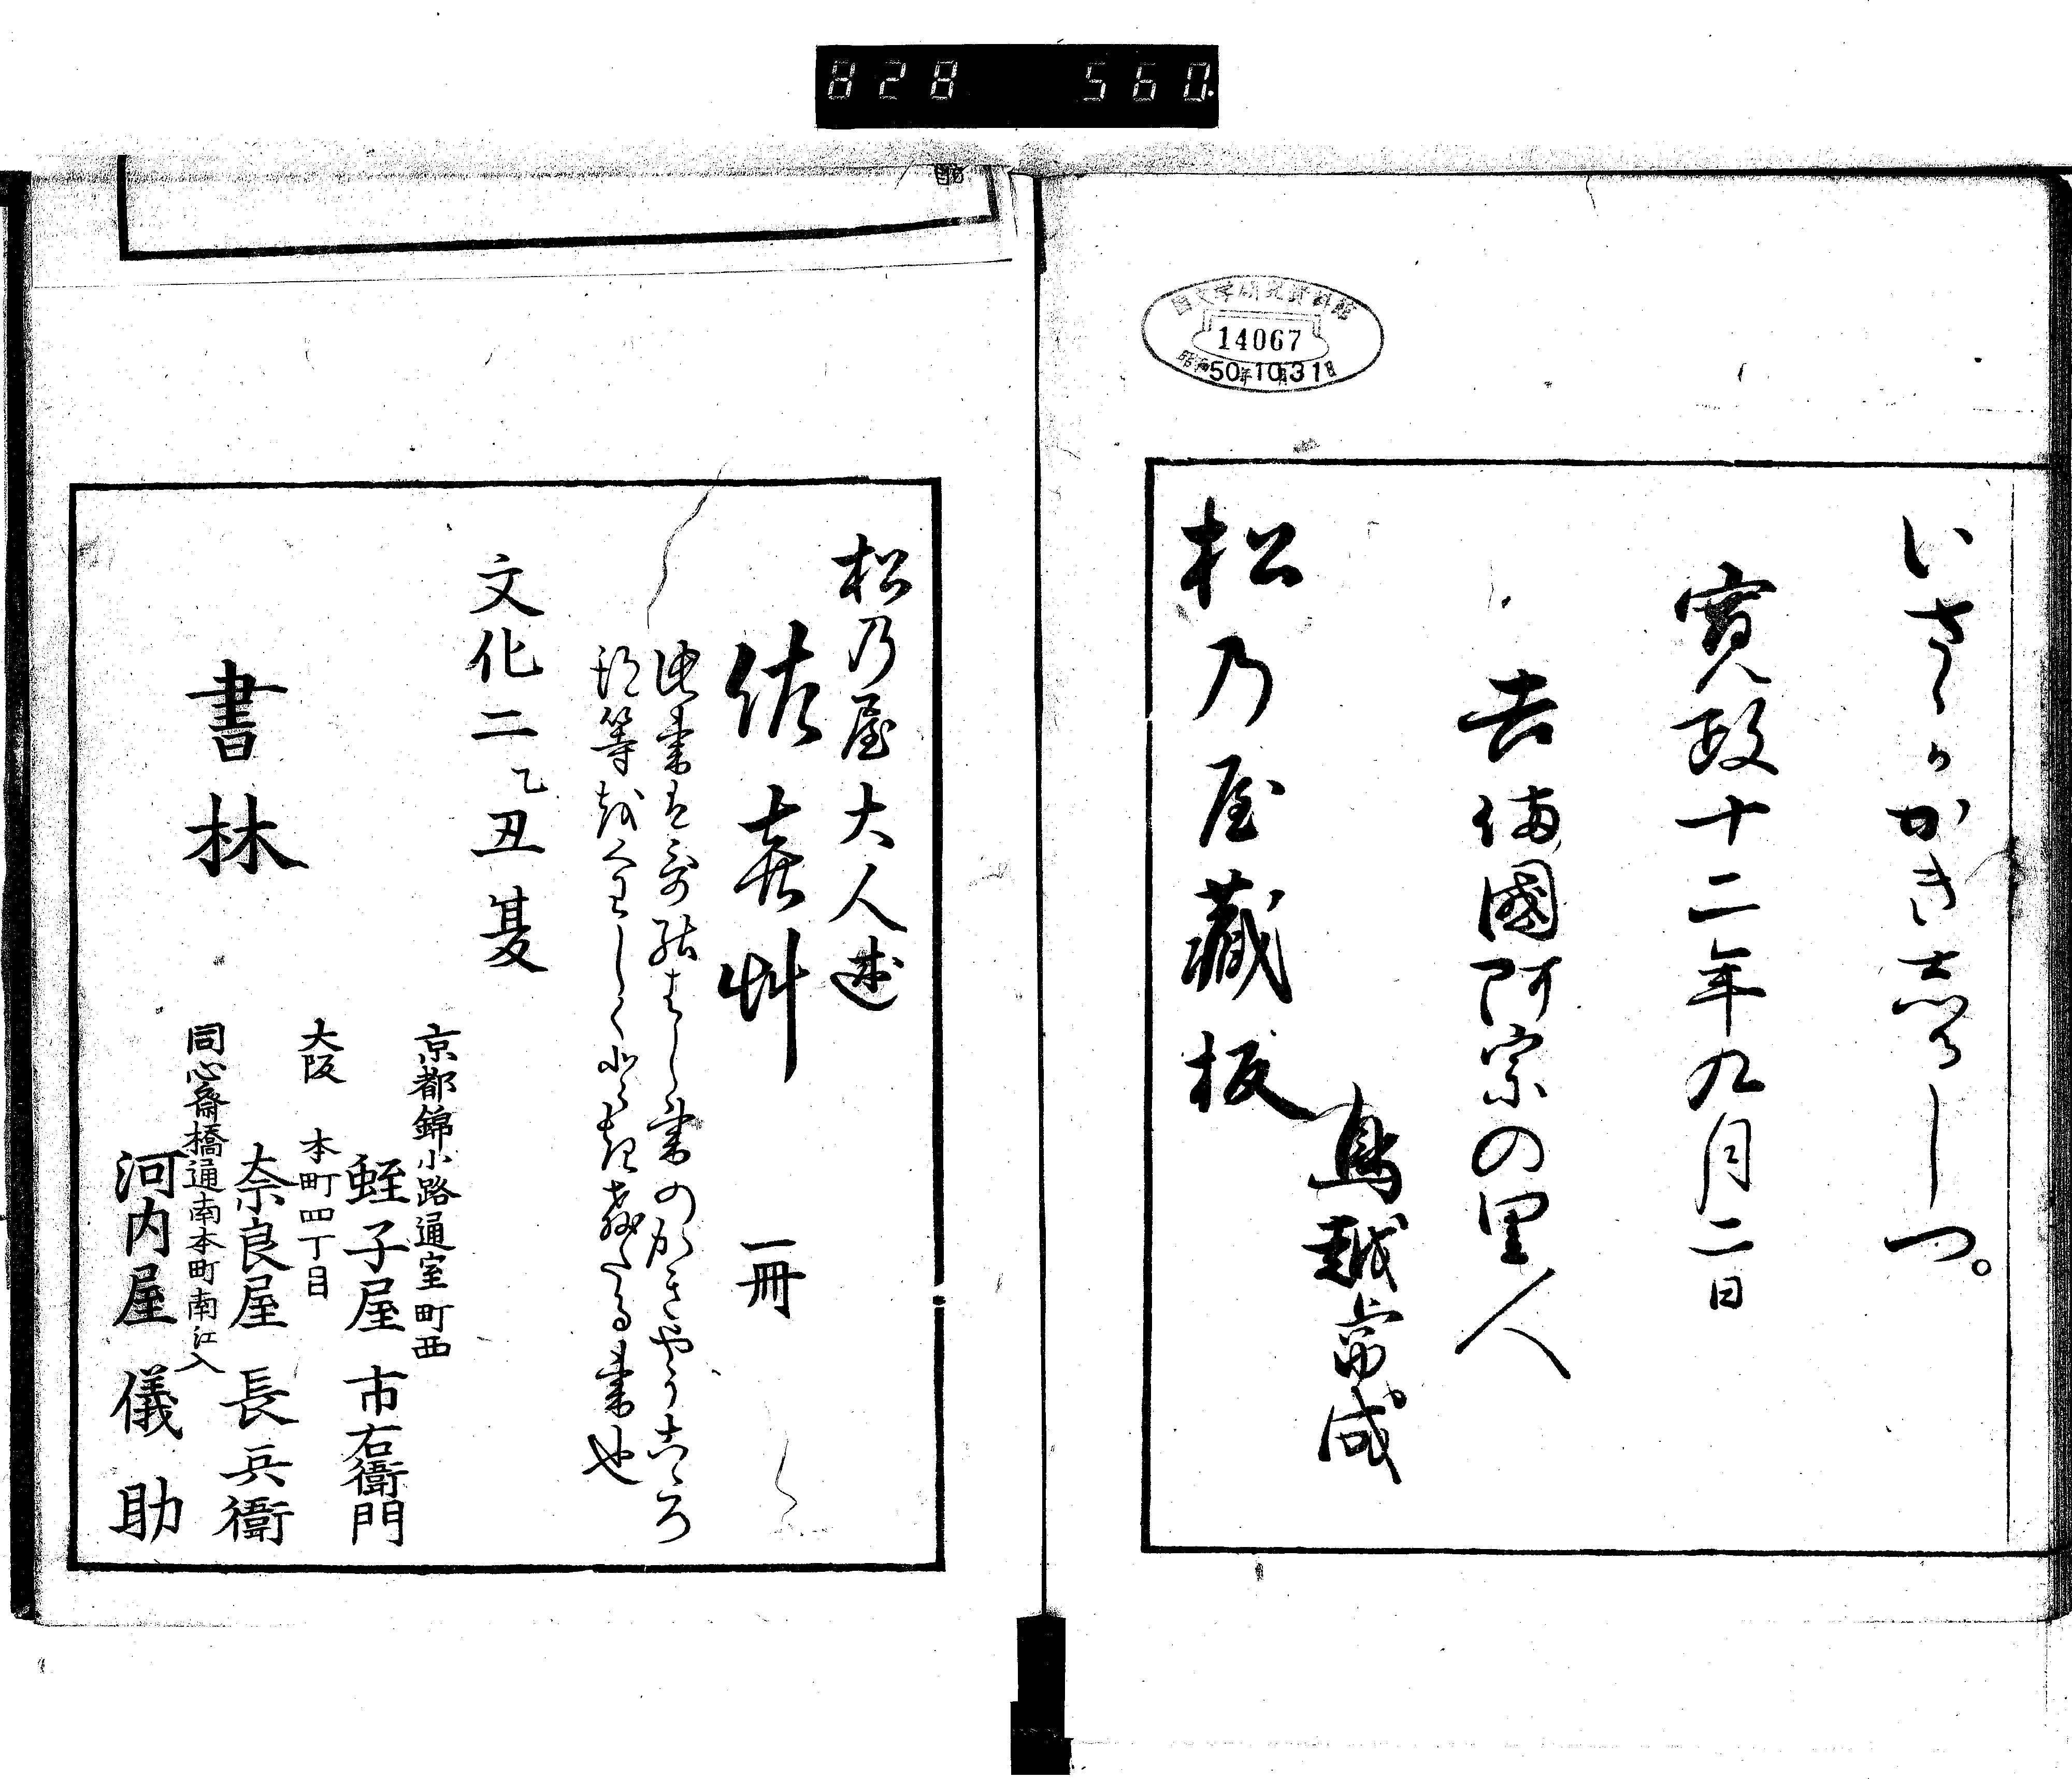 828 560
国文学研究資料館
14067
昭和50年10月31日
いさゝかかき志るしつ。
寛政十二年九月二日
吉備國阿宗の里人
鳥越常成
松乃屋藏板
松乃屋大人述
佐喜艸 一冊
此書は哥結はし書のかきやうこゝろ
得等
書也
文化二乙丑夏
書林
京都錦小路通室町西
蛭子屋市右衞門
大阪 本町四丁目
奈良屋長兵衞
同心斎橋通南本町南江入
河内屋儀助